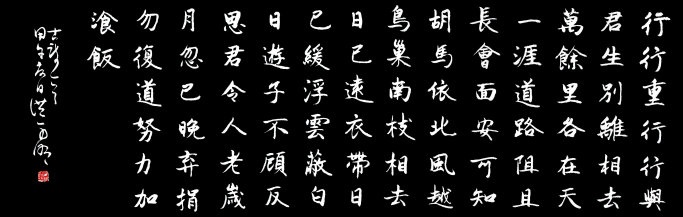 行行重行行與
君生別離相去
萬餘里各在天
一涯道路阻且
長會面安可知
胡馬依北風越
鳥巢南枝相去
日已遠衣帶日
已緩浮雲蔽白
日遊子不顧反
思君令人老歲
月忽已晚弃捐
勿復道努力加
湌飯